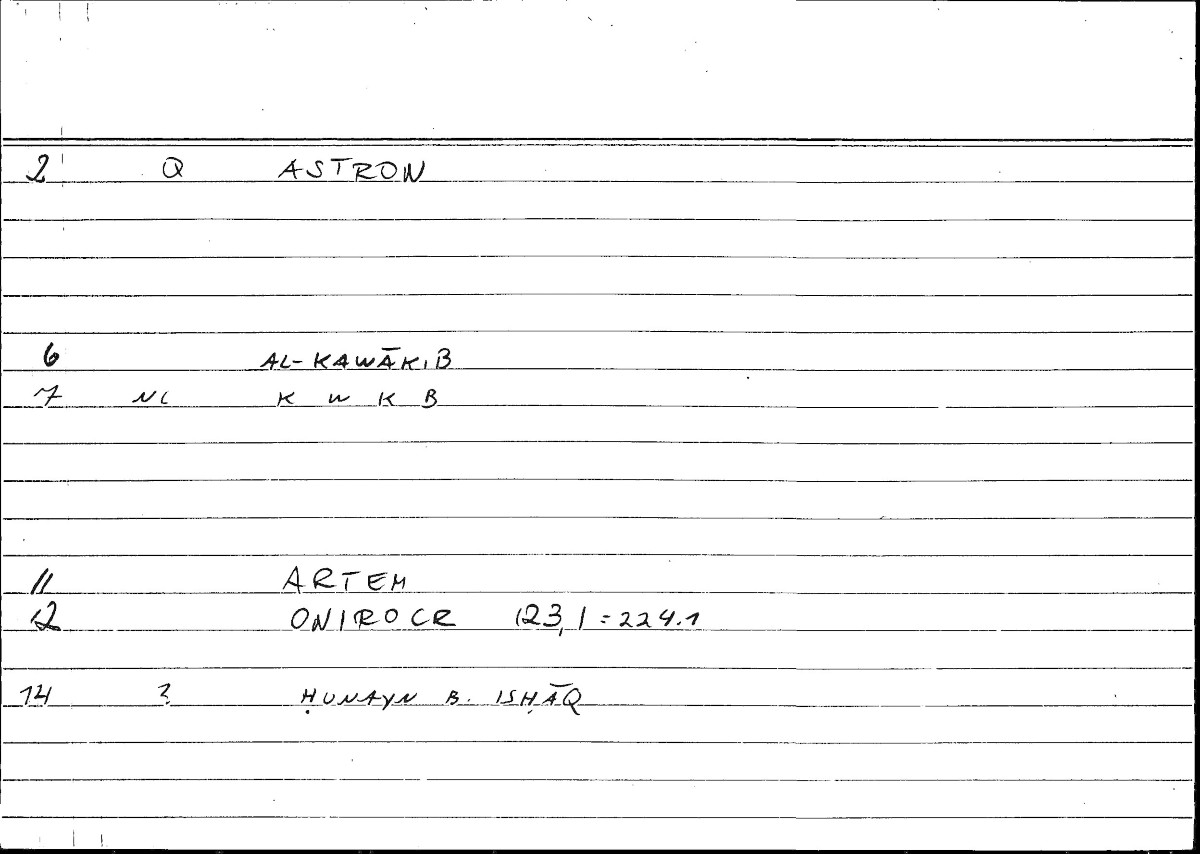 2 Q ASTRON
6 AL-KAWĀKIB
7 NC K W K B
11 ARTEM
12 ONIROCR 123,1=224.1
14 2 ḤUNAYN B. ISḤĀQ